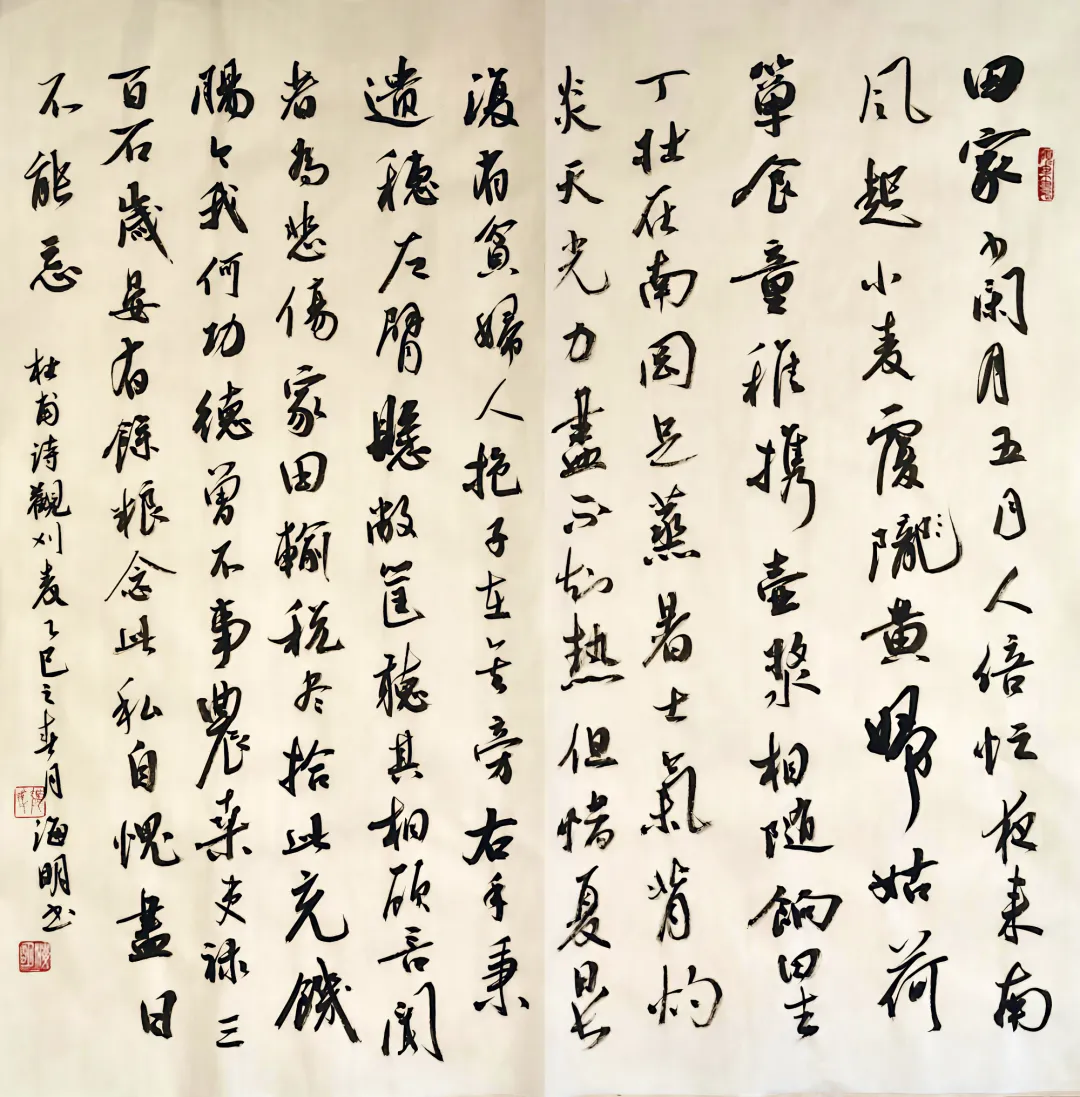 田家少闲月五月人倍忙夜来南
风起小麦覆隴黄婦姑荷
箪食童稚携壶浆相随餉田去
丁壮在南冈足蒸暑土氣背灼
炎天光力盡不知热但惜夏日長
復有貧婦人抱子在其旁右手秉
遗穗左臂懸敝筐聽其相顾言闻
者为悲傷家田輸税尽拾此充饑
腸今我何功德曾不事農桑吏禄三
百石歲晏有餘粮念此私自愧盡日
不能忘
杜甫诗觀刈麦乙巳之春月海明书